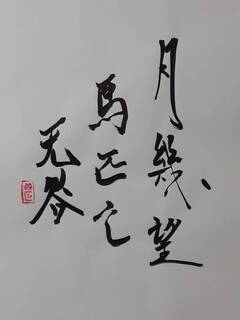 月幾望
馬匹亡
无咎